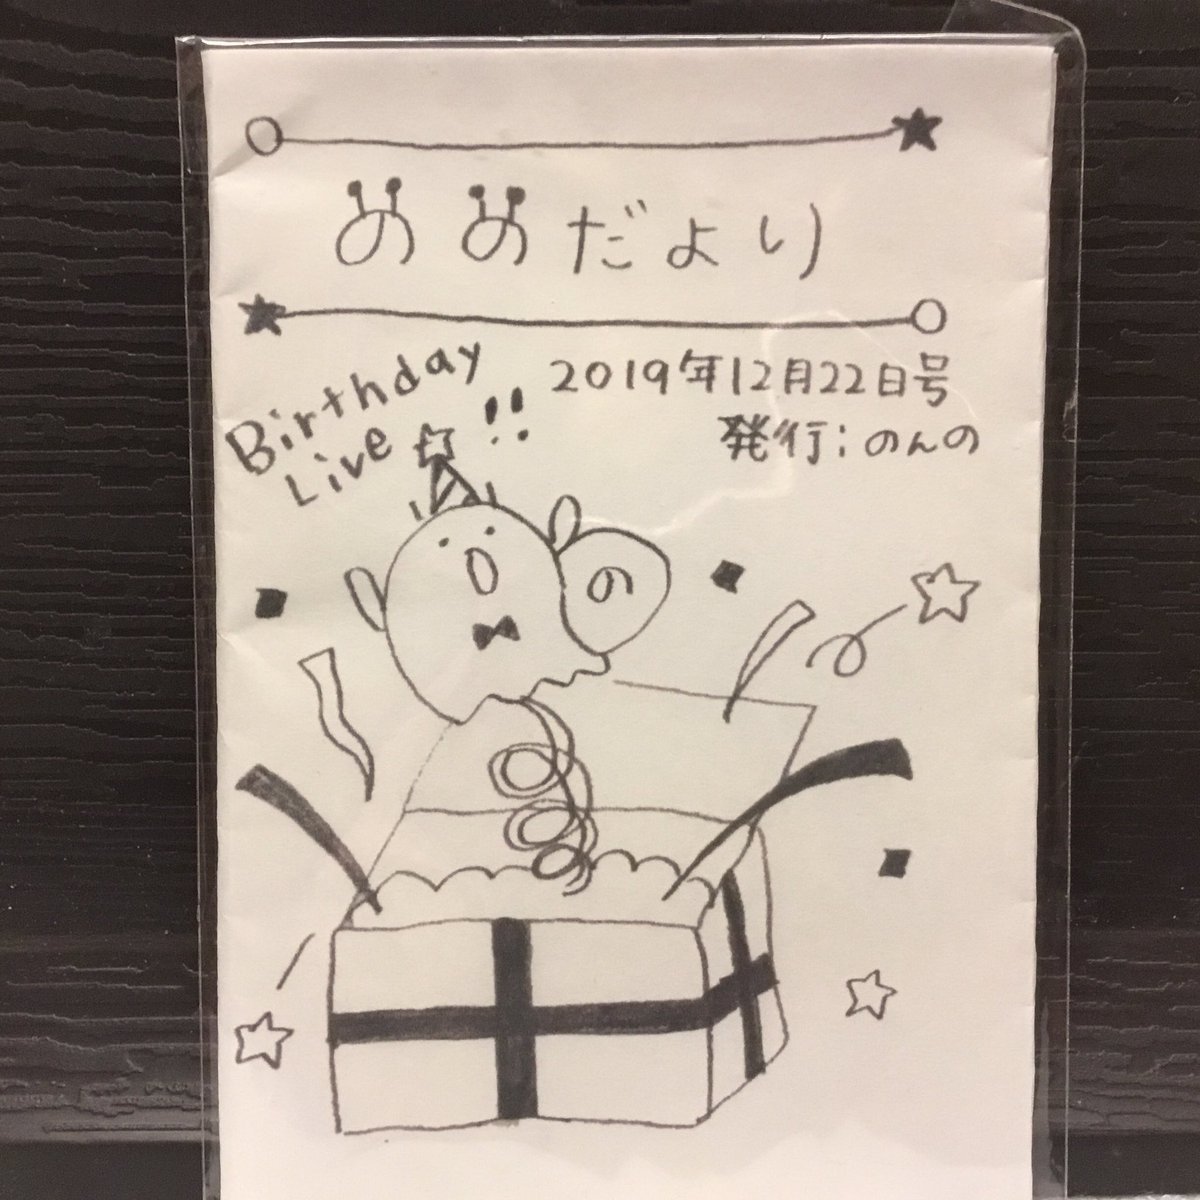 ののだより
Birthday
Live !!
2019年12月22日号
発行:のんの
の